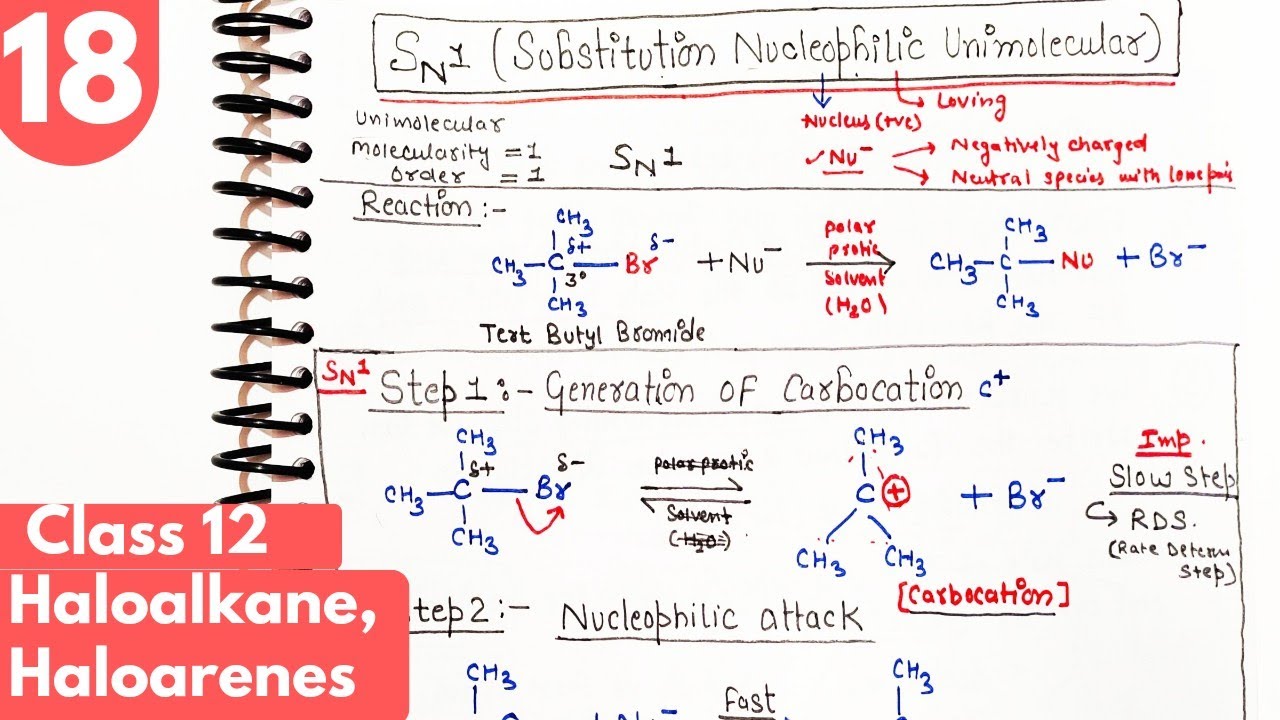 18
SN1 (Substitution Nucleophilic Unimolecular)
Loving
Nucleus (+ve)
Unimolecular
Molecularity = 1
Order = 1
SN1
✓Nu⁻
Negatively charged
Neutral species with lone pair
Reaction :-
CH3
CH3–C–Br + Nu⁻
δ+ δ-
3°
CH3
polar
protic
Solvent
(H2O)
CH3
CH3–C–Nu + Br⁻
CH3
Tert Butyl Bromide
SN1
Step 1 :- Generation of Carbocation C+
CH3
δ+ δ-
CH3–C–Br
CH3
polar protic
Solvent
(H2O)
CH3
C + + Br⁻
CH3 CH3
[Carbocation]
Imp.
Slow Step
RDS.
(Rate Determ
Step)
Class 12
Haloalkane,
Haloarenes
tep 2 :- Nucleophilic attack
CH3
Fast
CH3